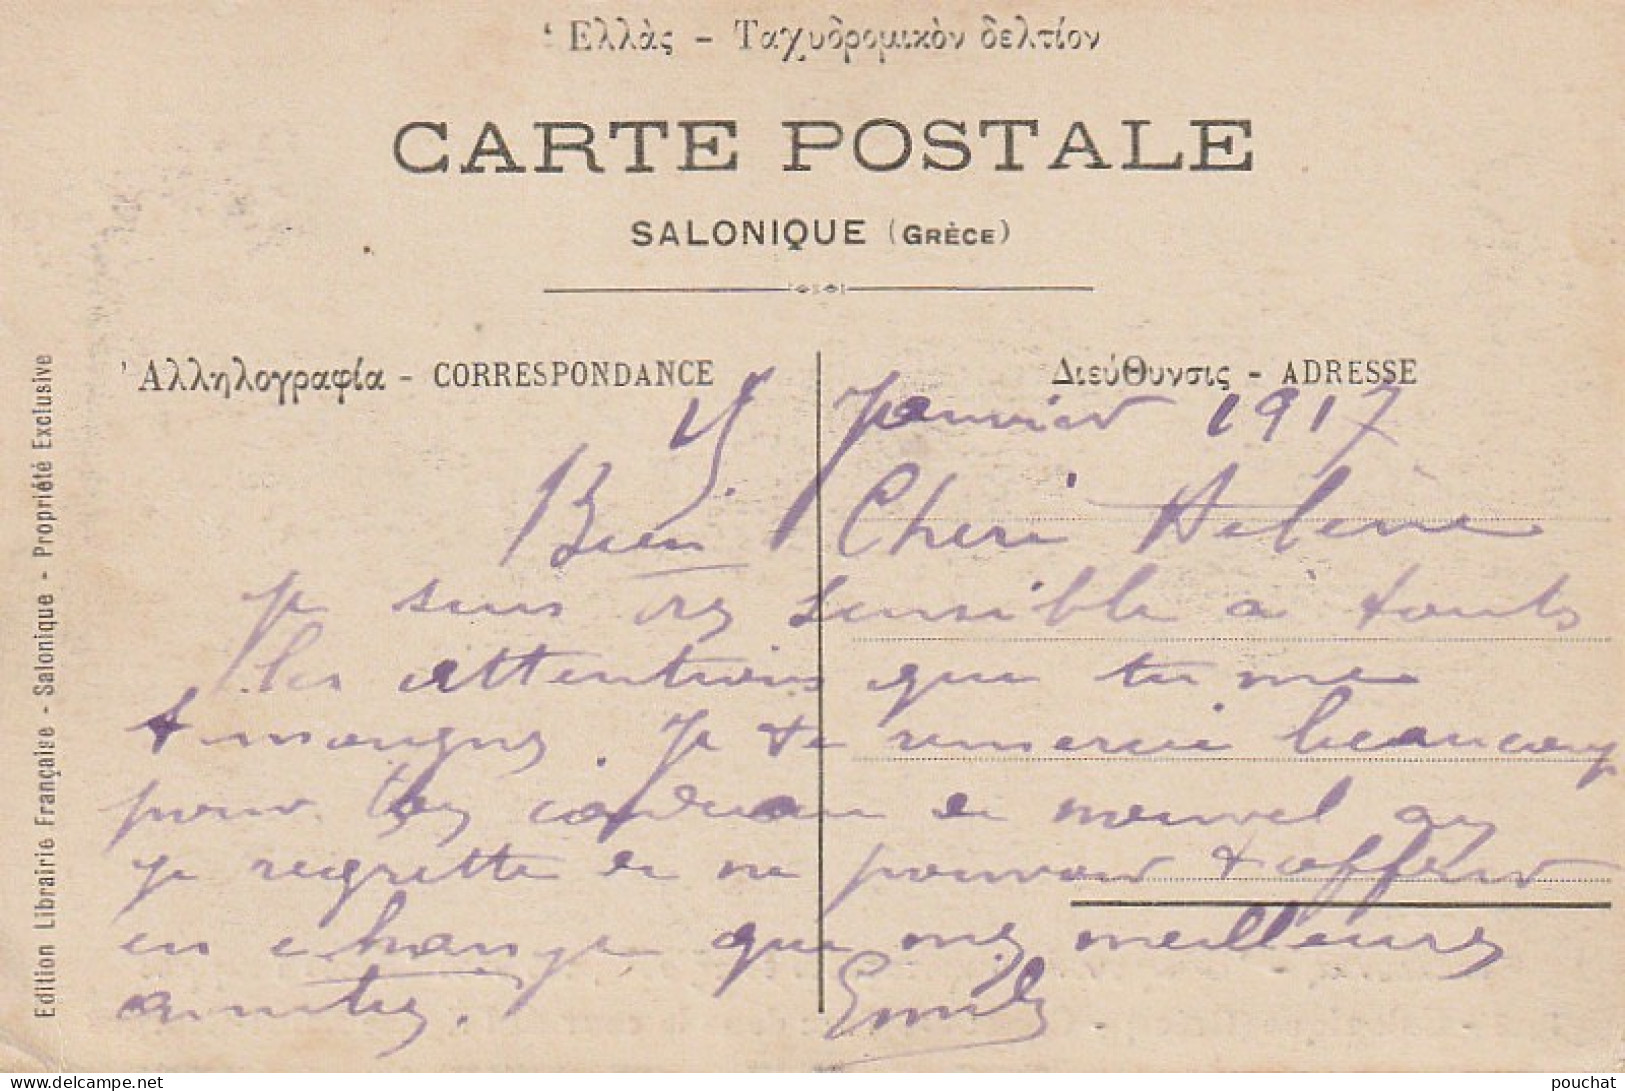 Ἑλλὰς - Ταχυδρομικὸν δελτίον
CARTE POSTALE
SALONIQUE (GRÈCE)
Ἀλληλογραφία - CORRESPONDANCE
Διεύθυνσις - ADRESSE
Edition Librairie Française - Salonique - Propriété Exclusive
15 Janvier 1917
Bien Cheri Helène
Je suis trés sensible a touts
les attentions que tu me
temoigne. Je te remercie beaucoup
pour tes de nouvel an
Je regrette de ne pouvoir t offrir
en echange que mes meilleurs
amities. Emile
www.delcampe.net
pouchat